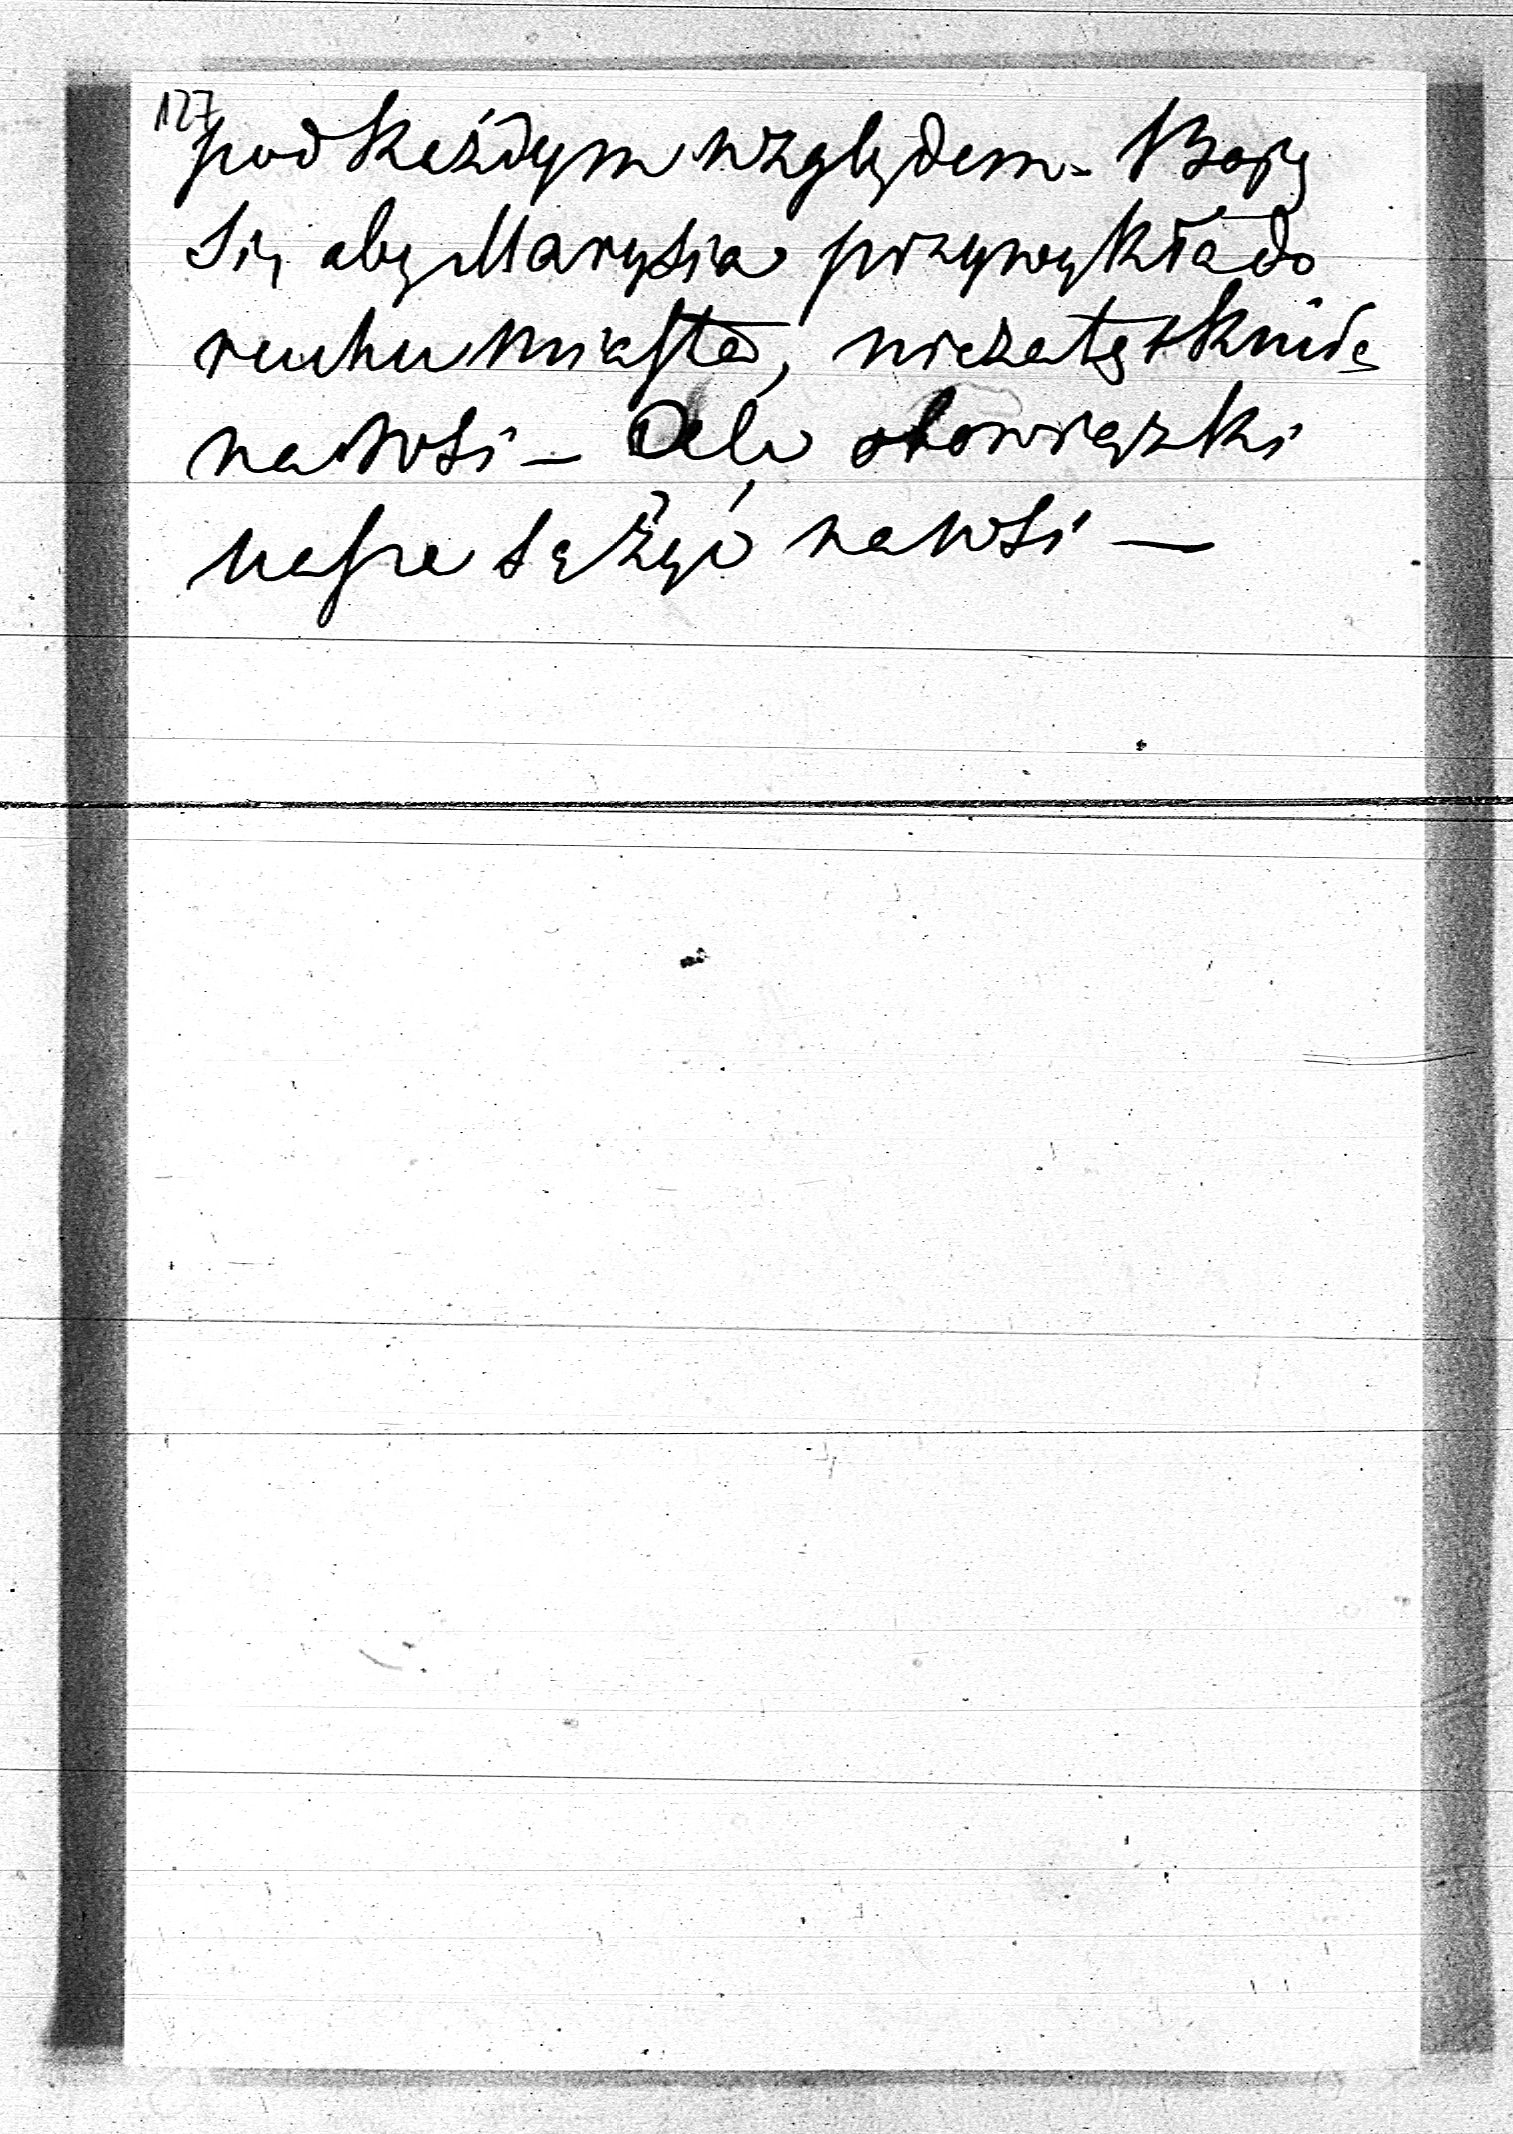 127
pod każdym względem. Boję
się aby Marysia przywykła do
ruchu miasta, nie zatęskniła
na wsi — Ale obowiązki
nasze są żyć na wsi —